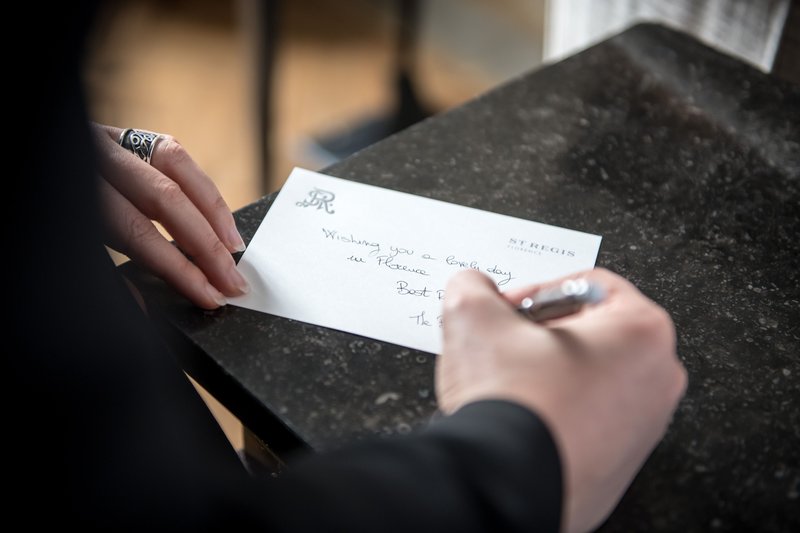 ST REGIS
FLORENCE
Wishing you a lovely day
in Florence
Best
The